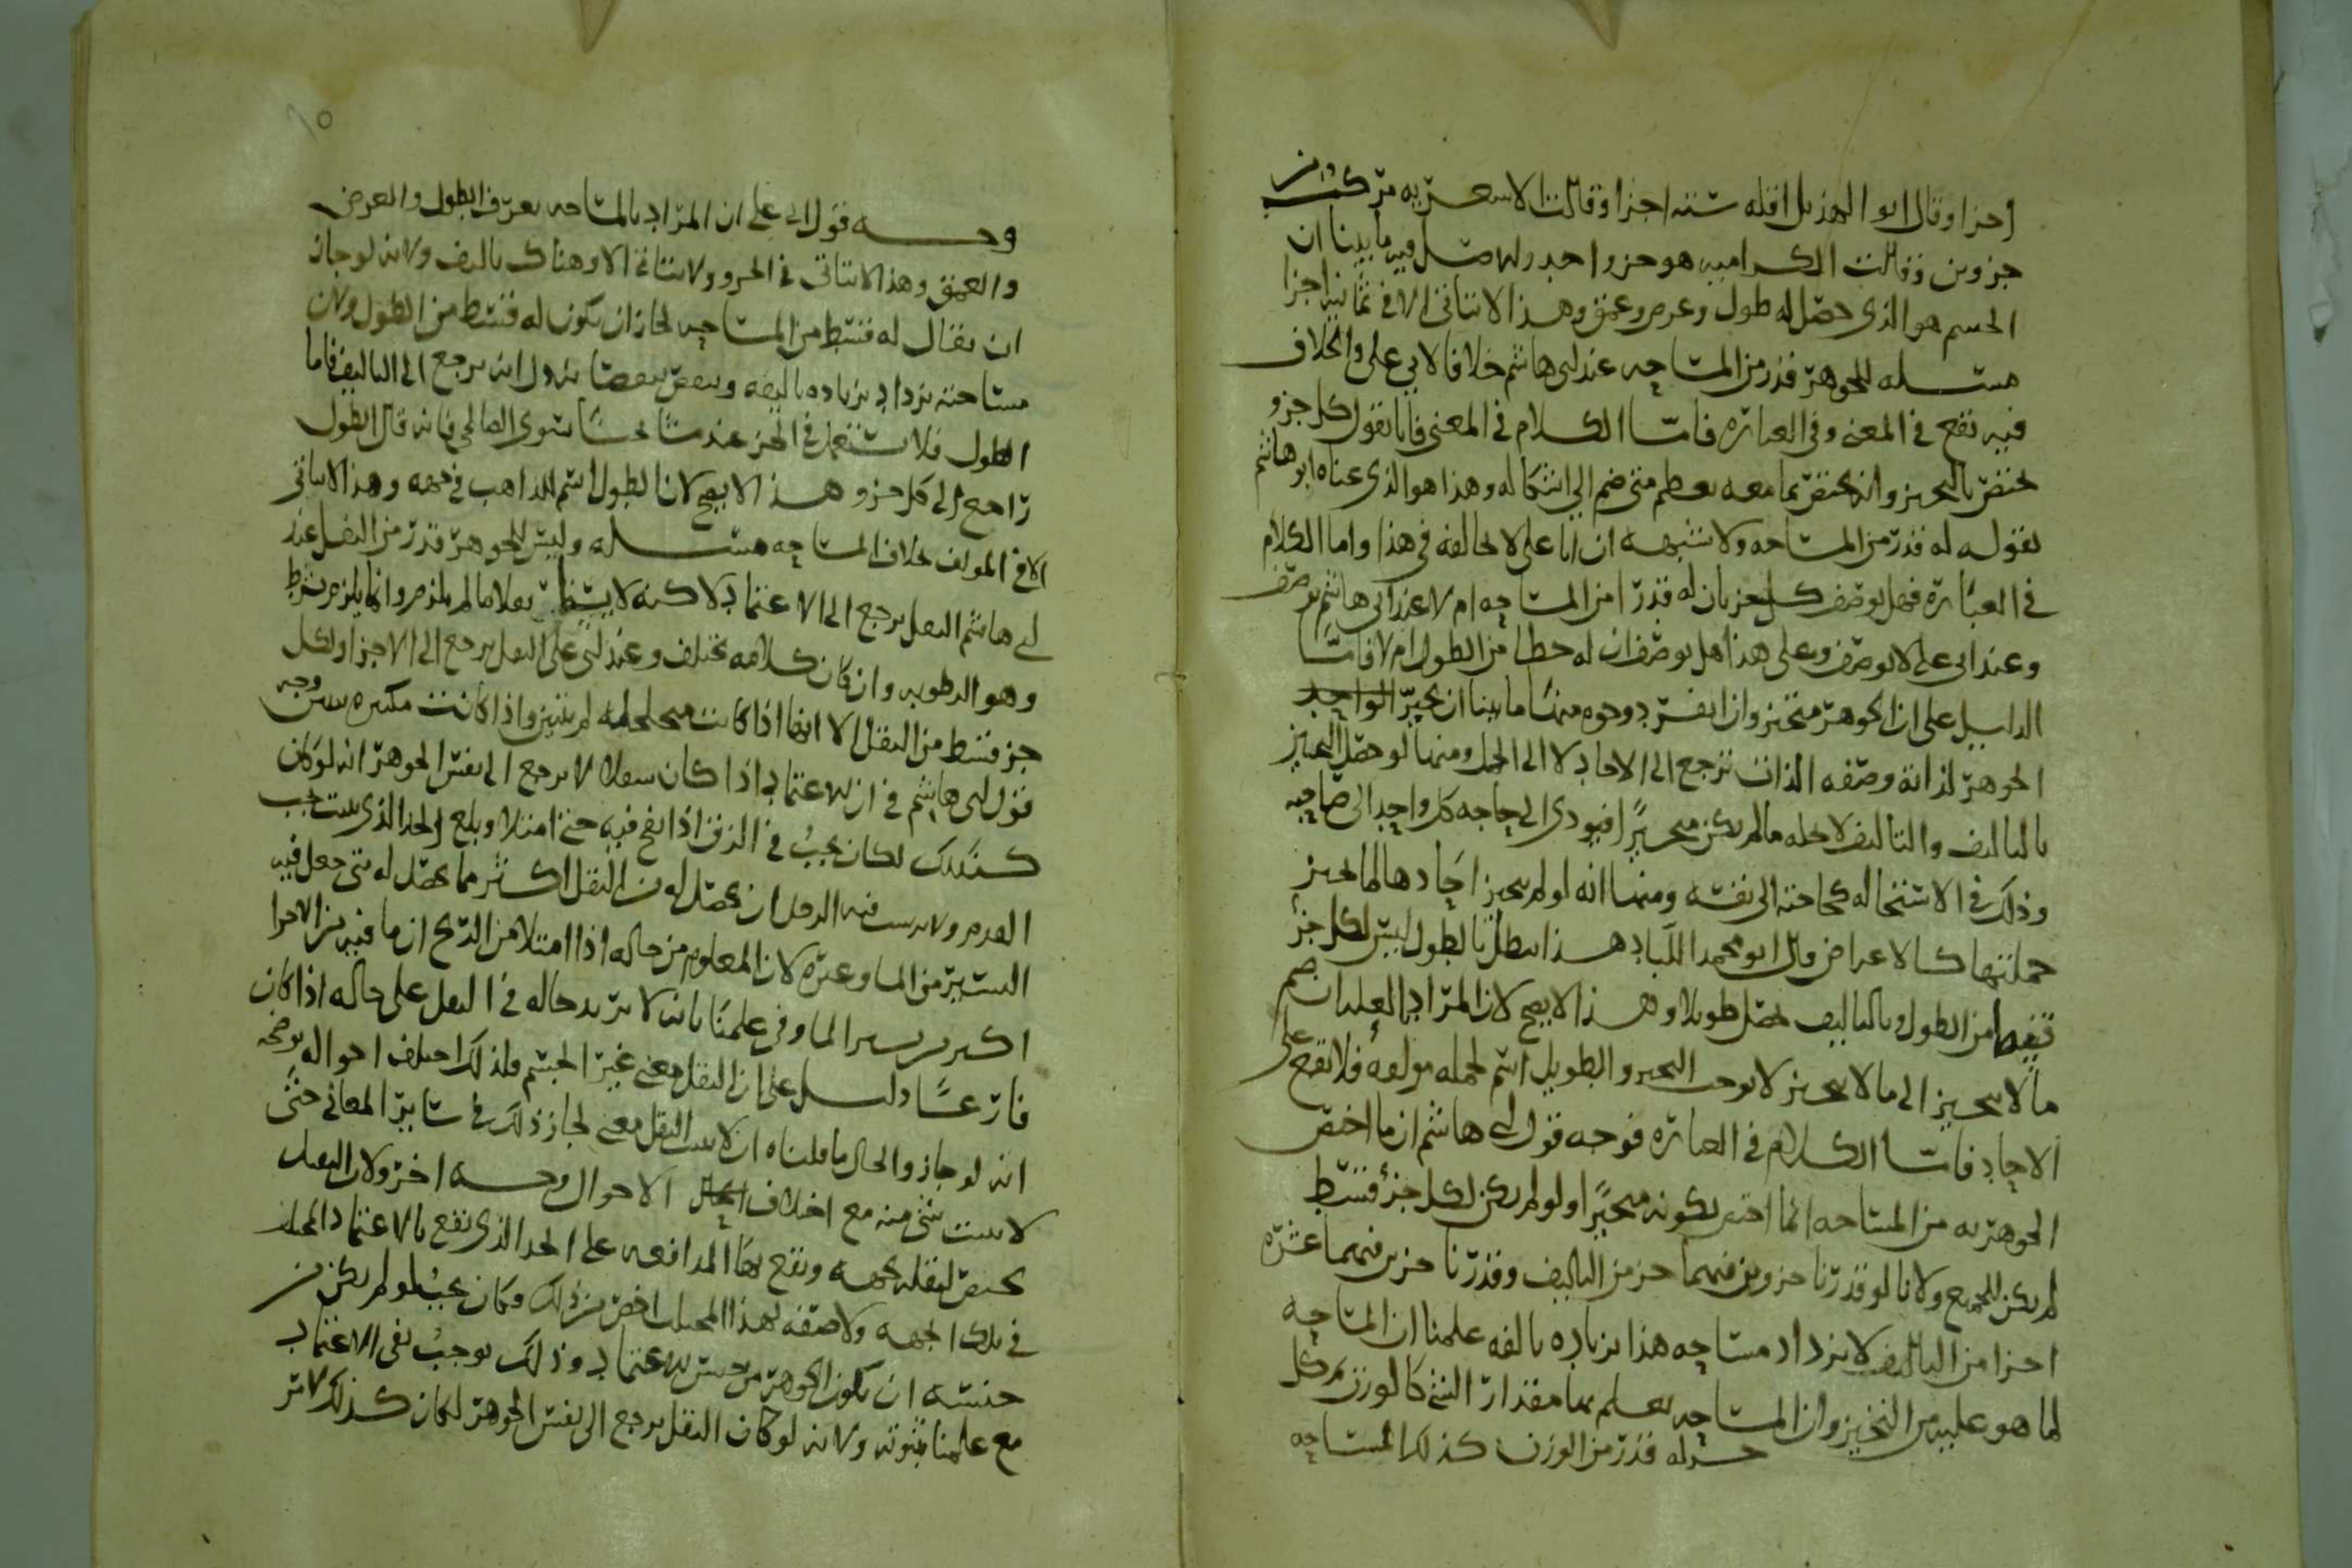 اجزا وقال ابو الهذيل اقله سته اجزا وقالت الاشعريه مركب من
جزوين وقالت الكراميه هو جزو احد ولنا فيه ما بينا ان
الجسم هو الذي حصل له طول وعرض وعمق وهذا لا يتاتى الا في ثمانيه اجزا
مسله للجوهر قدر من المساحه عند ابي هاشم خلافا لابي علي والخلاف
فيه يقع في المعنى وفي العباره فاما الكلام في المعنى فانا نقول كل جزو
يختص بالتحيز وانه يختص بما معه يعظم متى ضم الى اشكاله وهذا هو الذي عناه ابو هاشم
بقوله له قدر من المساحه ولا شبهه ان ابا علي لا يخالفه في هذا واما الكلام
في العباره فهل يوصف كل جز بان له قدرا من المساحه ام لا عند ابي هاشم يوصف
وعند ابي علي لا يوصف وعلى هذا هل يوصف ان له حظا من الطول ام لا فاما
الدليل على ان الجوهر متحيز وان انفرد وجوه منها ما بينا ان تحيز الواحد
الجوهر لذاته وصفه الذات ترجع الى الاحاد لا الى الجمل ومنها لو حصل التحيز
بالتاليف والتاليف لا يحله ما لم يكن متحيزا فيودي الى حاجه كل واحد الى صاحبه
وذلك في الاستحاله كحاجته الى نفسه ومنها انه لو لم يتحيز احادها لما تحيز
جملتها كالاعراض قال ابو محمد اللباد هذا يبطل بالطول ليس لكل جز
قسط من الطول وبالتاليف يحصل طويلا وهذا لا يصح لان المراد بالعلتان ضم
ما لا يتحيز الى ما لا يتحيز لا يوجب التحيز والطويل اسم لجمله مولفه فلا يقع على
الاحاد فاما الكلام في العباره فوجه قول ابي هاشم ان ما اختص
الجوهر به من المساحه انما اختص لكونه متحيزا ولو لم يكن لكل جز قسط
لم يكن للجميع ولانا لو قدرنا جزوين فيهما جز من التاليف وقدرنا جزين فيهما عشره
اجزا من التاليف لا يزداد مساحه هذا بزياده تالفه علمنا ان المساحه
لما هو عليه من التحيز وان المساحه يعلم بها مقدار الشي كالوزن كل
جز له قدر من الوزن كذلك المساحه
وجه قول ابي علي ان المراد بالمساحه يعرف الطول والعرض
والعمق وهذا لا يتاتى في الجزو ولا يتاتى الا وهناك تاليف ولانه لو جاز
ان يقال له قسط من المساحه لجاز ان يكون له قسط من الطول ولان
مساحته يزداد بزياده تاليفه وينقص بنقصانه دل انه يرجع الى التاليف فاما
الطول فلا يستعمل في الجز عند مشايخنا سوى الصالحي فانه قال الطول
راجع الى كل جزو هذا لا يصح لان الطول اسم للذاهب في جهه وهذا لا يتاتى
الا في المولف بخلاف المساحه مسله وليس للجوهر قدر من الثقل عند
ابي هاشم الثقل يرجع الى الاعتماد لاكنه لا ثقلا ما لم يلزم وانما يلزم بشرط
وهو الرطوبه وان كان كلامه يختلف وعند ابي علي الثقل يرجع الى الاجزا ولكل
جز قسط من الثقل الا انها اذا كانت متخلخله لم يتبين واذا كانت مكتنزه تبين وجه
قول ابي هاشم في ان الاعتماد اذا كان ثقلا لا يرجع الى نفس الجوهر انه لو كان
كذلك لكان يجب في الزق اذا نفخ فيه حتى امتلا وبلغ الحد الذي يجب
ان يحصل له من الثقل اكثر مما يحصل له متى جعل فيه
اليسير من الما وغيره لان المعلوم من حاله اذا امتلا من الريح ان ما فيه من الاجزا
اكثر من يسير الما وفي علمنا بانه لا يزيد حاله في الثقل على حاله اذا كان
فارغا دليل على ان الثقل معنى غير الجسم ولذلك اختلف احواله يوضحه
انه لو جاز والحال ما قلناه ان لا يثبت الثقل معنى لجاز ذلك في ساير المعاني حتى
لا يثبت شي منه مع اختلاف الاحوال وجه اخر ولان الثقل
يختص لثقله بجهه ويقع بها المدافعه على الحد الذي يقع بالاعتماد
في تلك الجهه ولا صفه لهذا المحل اخص من ذلك وكان يجب لو لم يكن من
جنسه ان يكون الجوهر من جنس الاعتماد وذلك يوجب نفي الاعتماد
مع علمنا بثبوته ولانه لو كان الثقل يرجع الى نفس الجوهر لكان كذلك لامر